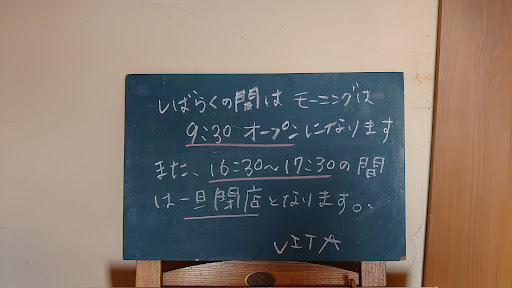 しばらくの間は モーニングは
9:30 オープンになります
また、16:30〜17:30の間
は一旦閉店となります。
VITA